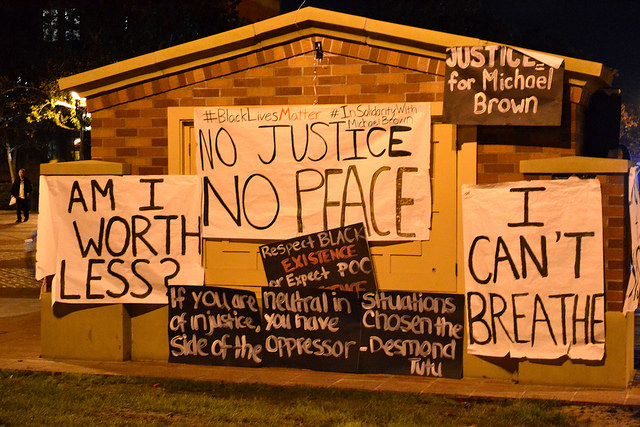 JUSTICE
for Michael
Brown
#BlackLivesMatter #InSolidarityWith
Michael Brown
NO JUSTICE
NO PEACE
AM I
WORTH
LESS?
I
CAN'T
BREATHE
Respect BLACK
EXISTENCE
or Expect POC
If you are neutral in situations
of injustice, you have chosen the
side of the oppressor - Desmond
Tutu